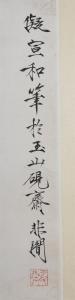 擬宣和筆於玉山硯齋非闇